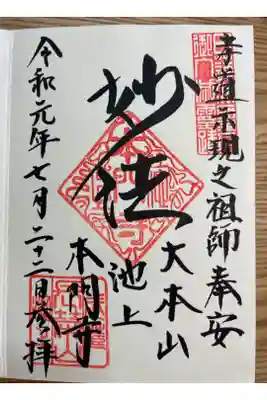 孝道示現之祖師奉安
大本山
池上
妙法
本門寺
令和元年七月二十二日参拝